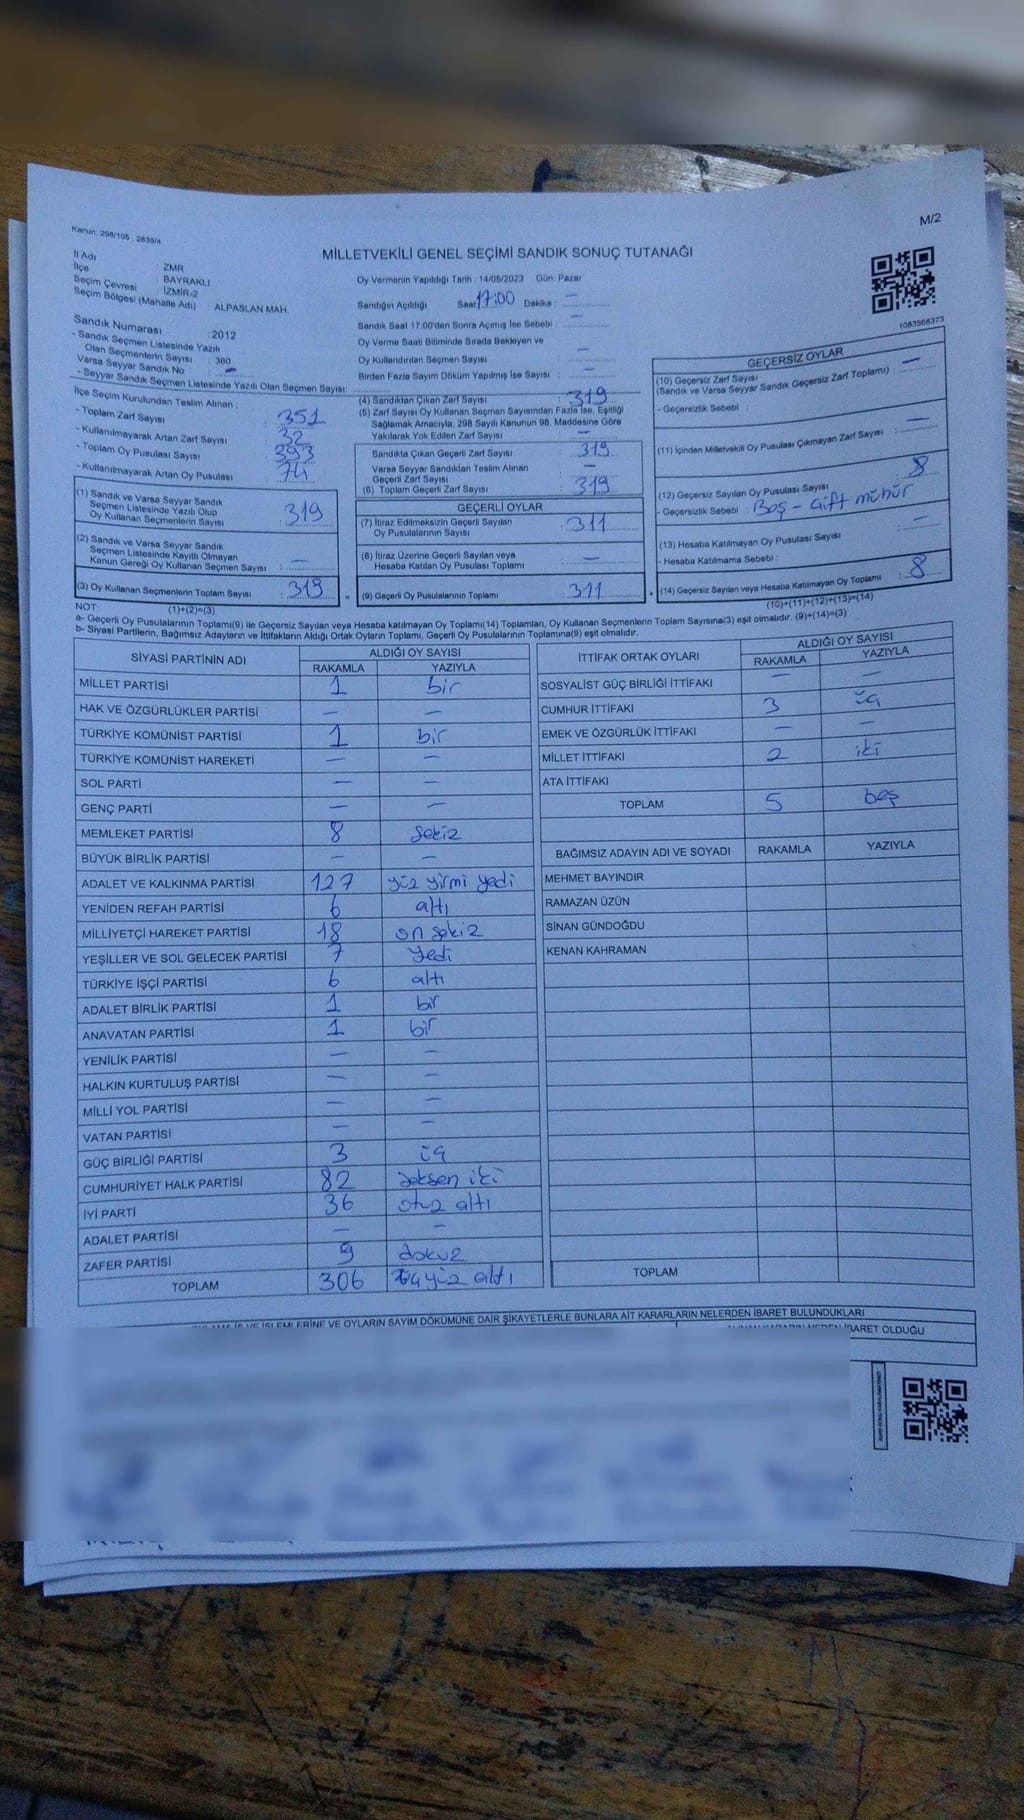 Kanun: 298/105 , 2839/4
M/2
MİLLETVEKİLİ GENEL SEÇİMİ SANDIK SONUÇ TUTANAĞI
İl Adı : ZMR
İlçe : BAYRAKLI
Seçim Çevresi : İZMİR-2
Seçim Bölgesi (Mahalle Adı) : ALPASLAN MAH.
Sandık Numarası : 2012
- Sandık Seçmen Listesinde Yazılı
Olan Seçmenlerin Sayısı : 360
Varsa Seyyar Sandık No : -
- Seyyar Sandık Seçmen Listesinde Yazılı Olan Seçmen Sayısı:
İlçe Seçim Kurulundan Teslim Alınan :
- Toplam Zarf Sayısı : 351
- Kullanılmayarak Artan Zarf Sayısı : 32
- Toplam Oy Pusulası Sayısı : 393
- Kullanılmayarak Artan Oy Pusulası : 74
(1) Sandık ve Varsa Seyyar Sandık
Seçmen Listesinde Yazılı Olup
Oy Kullanan Seçmenlerin Sayısı : 319
(2) Sandık ve Varsa Seyyar Sandık
Seçmen Listesinde Kayıtlı Olmayan
Kanun Gereği Oy Kullanan Seçmen Sayısı : —
(3) Oy Kullanan Seçmenlerin Toplam Sayısı : 319
(1)+(2)=(3)
Oy Vermenin Yapıldığı Tarih : 14/05/2023 Gün: Pazar
Sandığın Açıldığı Saat 17:00 Dakika : —
Sandık Saat 17.00'den Sonra Açımış İse Sebebi : —
Oy Verme Saati Bitiminde Sırada Bekleyen ve
Oy Kullandırılan Seçmen Sayısı : —
Birden Fazla Sayım Döküm Yapılmış İse Sayısı : —
(4) Sandıktan Çıkan Zarf Sayısı : 319
(5) Zarf Sayısı Oy Kullanan Seçmen Sayısından Fazla İse, Eşitliği
Sağlamak Amacıyla, 298 Sayılı Kanunun 98. Maddesine Göre
Yakılarak Yok Edilen Zarf Sayısı : —
Sandıkta Çıkan Geçerli Zarf Sayısı : 319
Varsa Seyyar Sandıktan Teslim Alınan
Geçerli Zarf Sayısı : —
(6) Toplam Geçerli Zarf Sayısı : 319
GEÇERLİ OYLAR
(7) İtiraz Edilmeksizin Geçerli Sayılan
Oy Pusulalarının Sayısı : 311
(8) İtiraz Üzerine Geçerli Sayılan veya
Hesaba Katılan Oy Pusulası Toplamı : —
= (9) Geçerli Oy Pusulalarının Toplamı : 311
1083568373
GEÇERSİZ OYLAR
(10) Geçersiz Zarf Sayısı
(Sandık ve Varsa Seyyar Sandık Geçersiz Zarf Toplamı) : —
- Geçersizlik Sebebi :
(11) İçinden Milletvekili Oy Pusulası Çıkmayan Zarf Sayısı : —
(12) Geçersiz Sayılan Oy Pusulası Sayısı : 8
- Geçersizlik Sebebi : Boş - Çift mühür
(13) Hesaba Katılmayan Oy Pusulası Sayısı : —
- Hesaba Katılmama Sebebi :
+ (14) Geçersiz Sayılan veya Hesaba Katılmayan Oy Toplamı : 8
(10)+(11)+(12)+(13)=(14)
NOT:
a- Geçerli Oy Pusulalarının Toplamı(9) ile Geçersiz Sayılan veya Hesaba Katılmayan Oy Toplamı(14) Toplamları, Oy Kullanan Seçmenlerin Toplam Sayısına(3) eşit olmalıdır. (9)+(14)=(3)
b- Siyasi Partilerin, Bağımsız Adayların ve İttifakların Aldığı Ortak Oyların Toplamı, Geçerli Oy Pusulalarının Toplamına(9) eşit olmalıdır.
SİYASİ PARTİNİN ADI ALDIĞI OY SAYISI
RAKAMLA YAZIYLA
MİLLET PARTİSİ 1 bir
HAK VE ÖZGÜRLÜKLER PARTİSİ — —
TÜRKİYE KOMÜNİST PARTİSİ 1 bir
TÜRKİYE KOMÜNİST HAREKETİ — —
SOL PARTİ — —
GENÇ PARTİ — —
MEMLEKET PARTİSİ 8 sekiz
BÜYÜK BİRLİK PARTİSİ — —
ADALET VE KALKINMA PARTİSİ 127 yüz yirmi yedi
YENİDEN REFAH PARTİSİ 6 altı
MİLLİYETÇİ HAREKET PARTİSİ 18 on sekiz
YEŞİLLER VE SOL GELECEK PARTİSİ 7 yedi
TÜRKİYE İŞÇİ PARTİSİ 6 altı
ADALET BİRLİK PARTİSİ 1 bir
ANAVATAN PARTİSİ 1 bir
YENİLİK PARTİSİ — —
HALKIN KURTULUŞ PARTİSİ — —
MİLLİ YOL PARTİSİ — —
VATAN PARTİSİ — —
GÜÇ BİRLİĞİ PARTİSİ 3 üç
CUMHURİYET HALK PARTİSİ 82 seksen iki
İYİ PARTİ 36 otuz altı
ADALET PARTİSİ — —
ZAFER PARTİSİ 9 dokuz
TOPLAM 306 üçyüz altı
İTTİFAK ORTAK OYLARI ALDIĞI OY SAYISI
RAKAMLA YAZIYLA
SOSYALİST GÜÇ BİRLİĞİ İTTİFAKI — —
CUMHUR İTTİFAKI 3 üç
EMEK VE ÖZGÜRLÜK İTTİFAKI — —
MİLLET İTTİFAKI 2 iki
ATA İTTİFAKI
TOPLAM 5 beş
BAĞIMSIZ ADAYIN ADI VE SOYADI RAKAMLA YAZIYLA
MEHMET BAYINDIR
RAMAZAN ÜZÜN
SİNAN GÜNDOĞDU
KENAN KAHRAMAN
TOPLAM
İŞLEMLERİNE VE OYLARIN SAYIM DÖKÜMÜNE DAİR ŞİKAYETLERLE BUNLARA AİT KARARLARIN NELERDEN İBARET BULUNDUKLARI
İBARET OLDUĞU